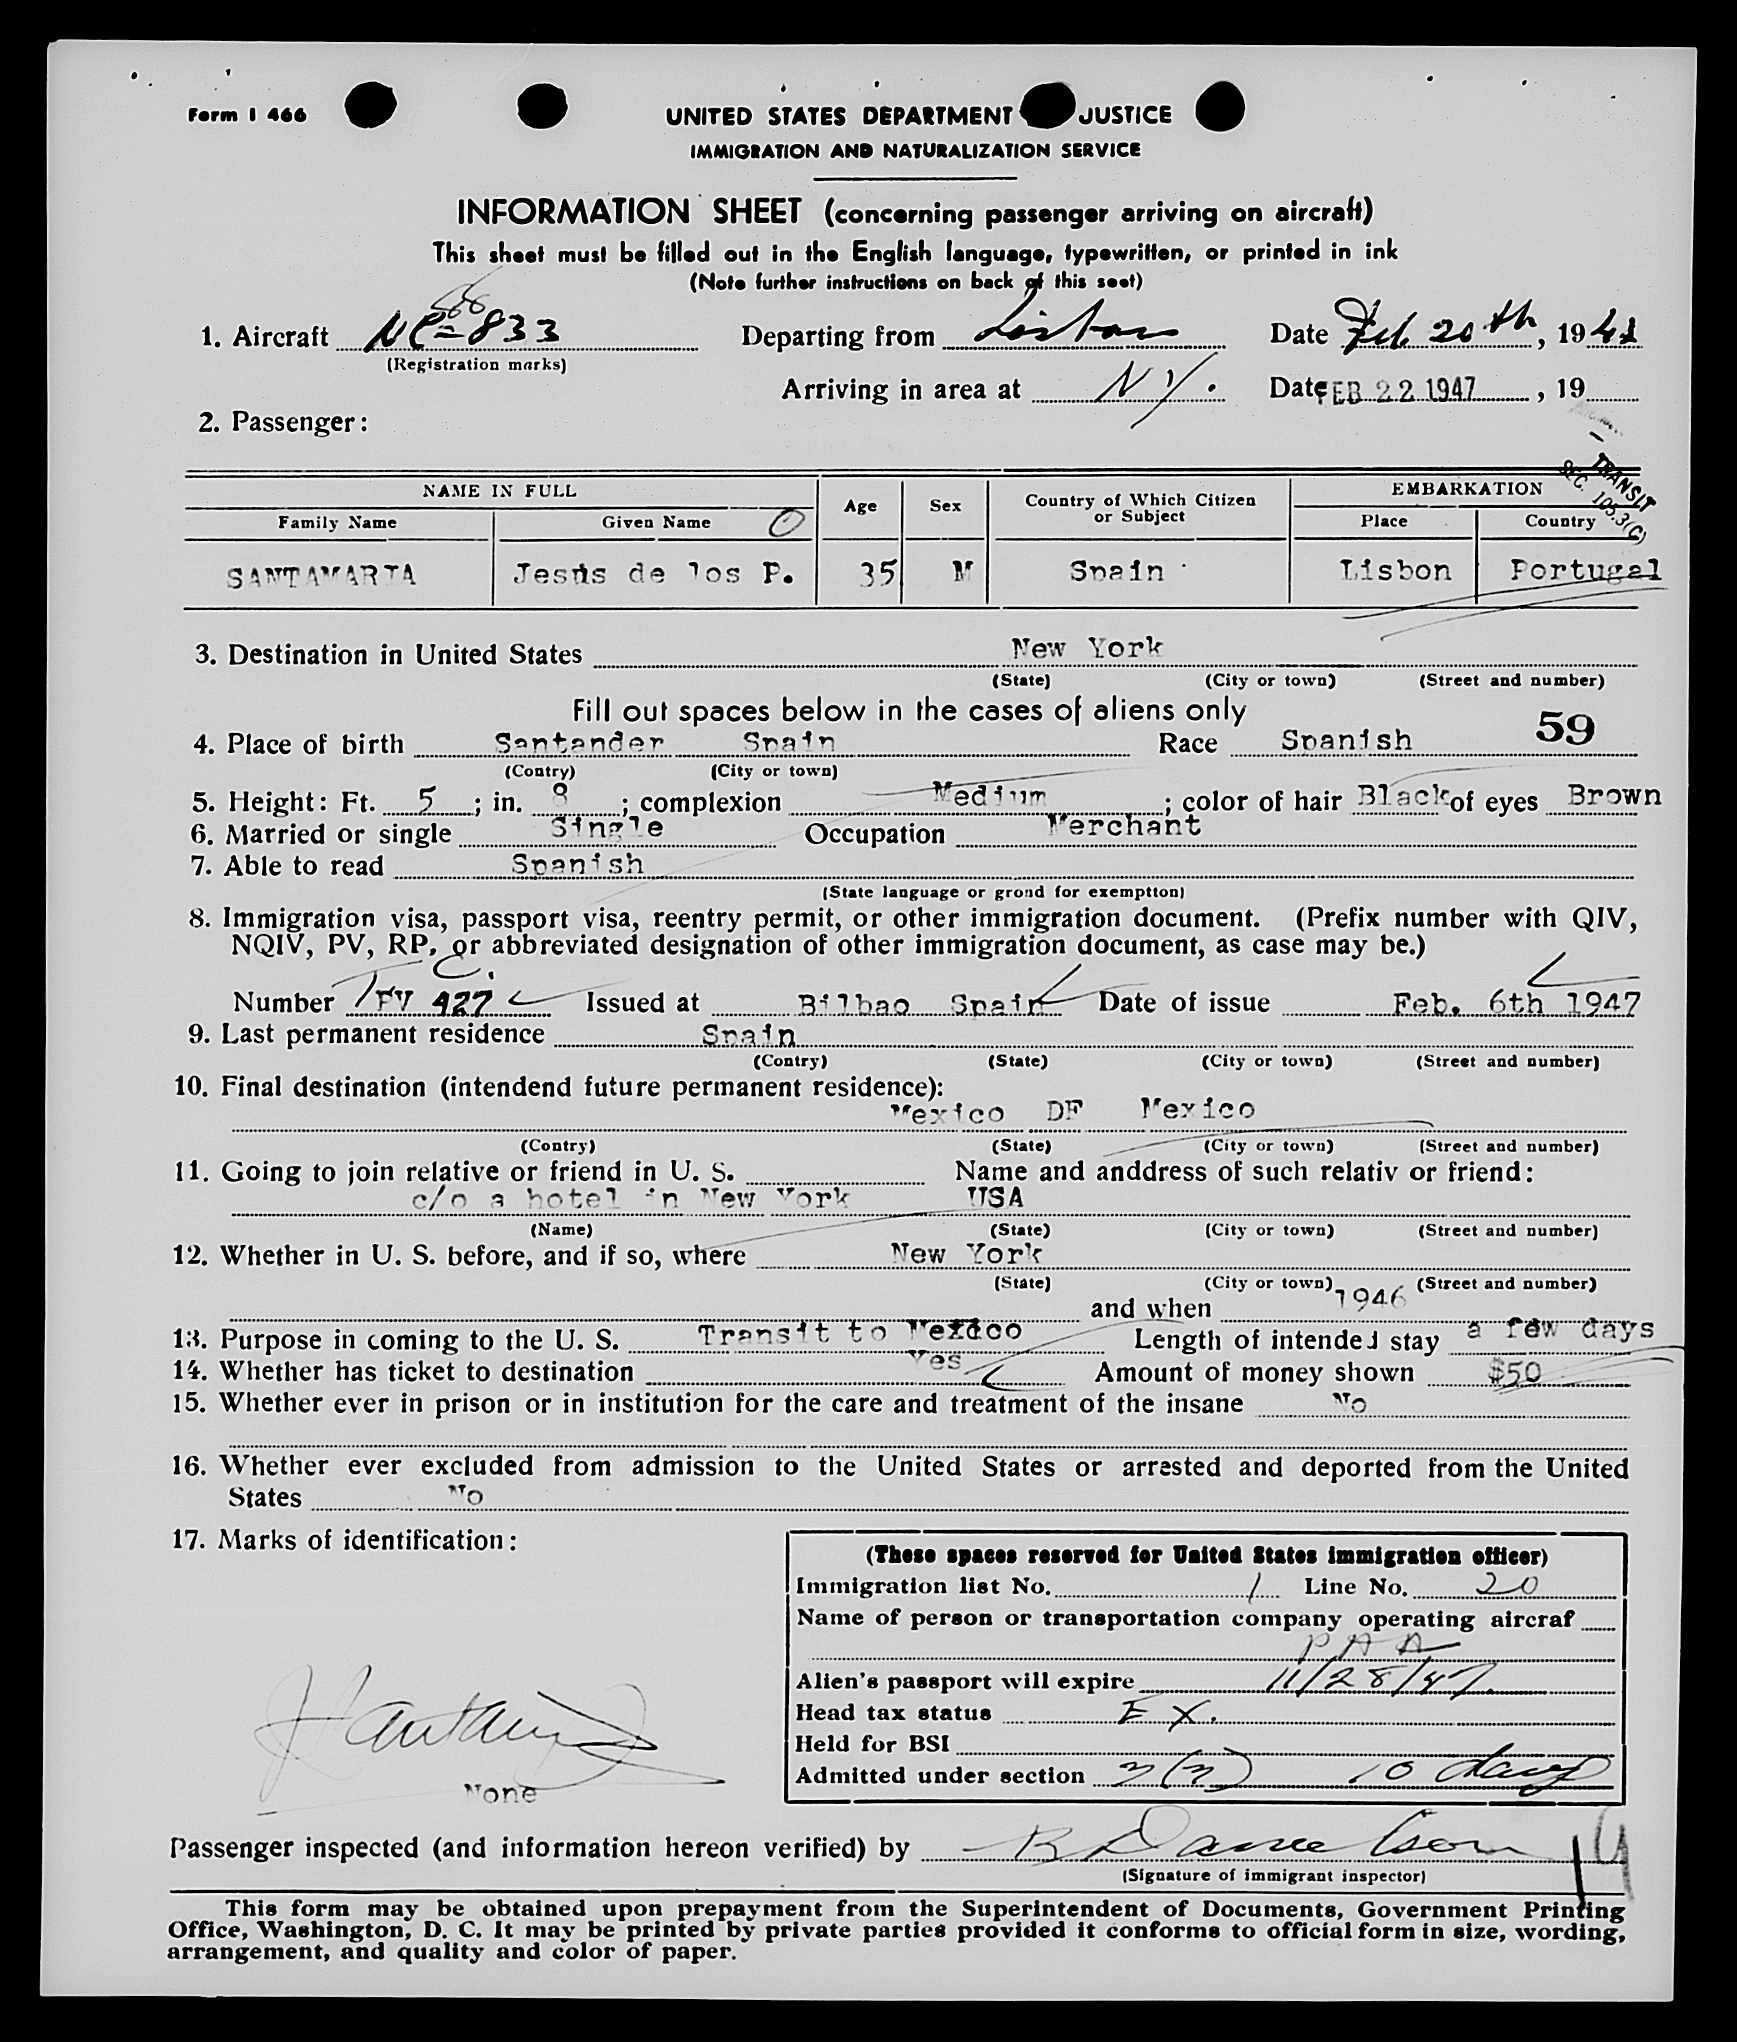 Form I 466
UNITED STATES DEPARTMENT JUSTICE
IMMIGRATION AND NATURALIZATION SERVICE
INFORMATION SHEET (concerning passenger arriving on aircraft)
This sheet must be filled out in the English language, typewritten, or printed in ink
(Note further instructions on back of this seet)
1. Aircraft NC= 88 833 Departing from Lisbon Date Feb. 20th, 19
(Registration marks)
Arriving in area at N Y. Date FEB 22 1947, 19
2. Passenger:
TRANSIT
SEC. 105.3(C)
NAME IN FULL Age Sex Country of Which Citizen or Subject EMBARKATION
Family Name Given Name Place Country
SANTAMARIA Jesús de los P. 35 M Spain Lisbon Portugal
3. Destination in United States New York
(State) (City or town) (Street and number)
Fill out spaces below in the cases of aliens only
4. Place of birth Santander Spain Race Spanish 59
(Contry) (City or town)
5. Height: Ft. 5; in. 8; complexion Medium; color of hair Black of eyes Brown
6. Married or single Single Occupation Merchant
7. Able to read Spanish
(State language or grond for exemption)
8. Immigration visa, passport visa, reentry permit, or other immigration document. (Prefix number with QIV,
NQIV, PV, RP, or abbreviated designation of other immigration document, as case may be.)
Number PV 427 Issued at Bilbao Spain Date of issue Feb. 6th 1947
9. Last permanent residence Spain
(Contry) (State) (City or town) (Street and number)
10. Final destination (intendend future permanent residence):
Mexico DF Mexico
(Contry) (State) (City or town) (Street and number)
11. Going to join relative or friend in U. S. Name and anddress of such relativ or friend:
c/o a hotel in New York USA
(Name) (State) (City or town) (Street and number)
12. Whether in U. S. before, and if so, where New York
(State) (City or town) (Street and number)
and when 1946
13. Purpose in coming to the U. S. Transit to Mexico Length of intended stay a few days
14. Whether has ticket to destination Yes Amount of money shown $50
15. Whether ever in prison or in institution for the care and treatment of the insane No
16. Whether ever excluded from admission to the United States or arrested and deported from the United
States No
17. Marks of identification:
(These spaces reserved for United States immigration officer)
Immigration list No. 1 Line No. 20
Name of person or transportation company operating aircraf
P A A
Alien's passport will expire 11/28/47
Head tax status EX.
Held for BSI
Admitted under section 3(3) 10 days
None
Passenger inspected (and information hereon verified) by
(Signature of immigrant inspector)
This form may be obtained upon prepayment from the Superintendent of Documents, Government Printing
Office, Washington, D. C. It may be printed by private parties provided it conforms to official form in size, wording,
arrangement, and quality and color of paper.